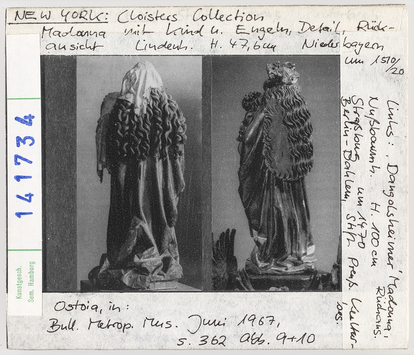 NEW YORK: Cloisters Collection
Madonna mit Kind u. Engeln, Detail, Rück-
ansicht Lindenh. H. 47,6 cm Niederbayern
um 1510/20
Links: 'Dangolsheimer Madonna,
Nußbaumh. H. 100 cm Rückans.
Straßburg um 1470
Berlin-Dahlem, Stift. Preuß. Kultur-
bes.
141734
Kunstgesch.
Sem. Hamburg
Ostoia, in:
Bull. Metrop. Mus. Juni 1967,
S. 362 Abb. 9+10